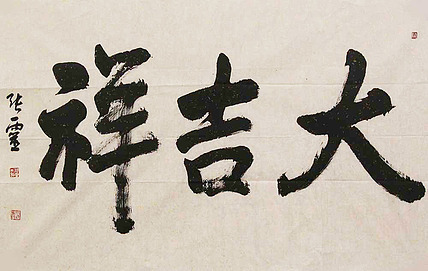 大吉祥
张灵